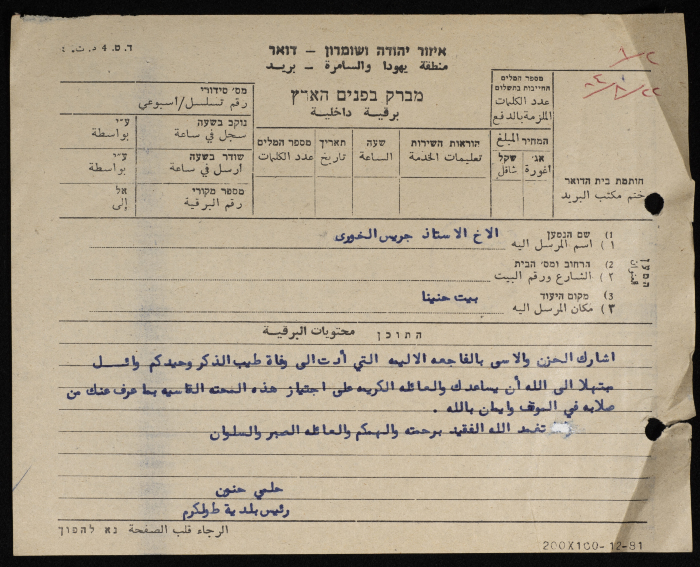 ד.ט. 4 ת.ב.
איזור יהודה ושומרון - דואר
منطقة يهودا والسامرة - بريد
מברק בפנים הארץ
برقية داخلية
מס' סידורי
رقم تسلسل/اسبوعي
נוקב בשעה
سجل في ساعة
ע"י
بواسطة
שודר בשעה
ارسل في ساعة
ע"י
بواسطة
מספר מקורי
رقم البرقية
אל
إلى
מספר המלים
عدد الكلمات
תאריך
تاريخ
שעה
الساعة
הוראות השירות
تعليمات الخدمة
מספר המלים
החייבות בתשלום
عدد الكلمات
الملزمة بالدفع
המחיר المبلغ
אג'
اغورة
שקל
شاقل
חותמת בית הדואר
ختم مكتب البريد
המען
العنوان
1) שם הנמען
١) اسم المرسل اليه
الاخ الاستاذ جريس الخوري
2) הרחוב ומס' הבית
٢) الشارع ورقم البيت
3) מקום היעוד
٣) مكان المرسل اليه
بيت حنينا
התוכן محتويات البرقية
اشارك الحزن والاسى بالفاجعه الاليمه التي أدت الى وفاة طيب الذكر وحيدكم وائل
مبتهلا الى الله أن يساعدك والعائله الكريمه على اجتياز هذه المحنه القاسيه بما عرف عنك من
صلابه في الموقف وايمان بالله .
تغمد الله الفقيد برحمته والهمكم والعائله الصبر والسلوان
حلمي حنون
رئيس بلدية طولكرم
الرجاء قلب الصفحة נא להפוך
200X100-12-81